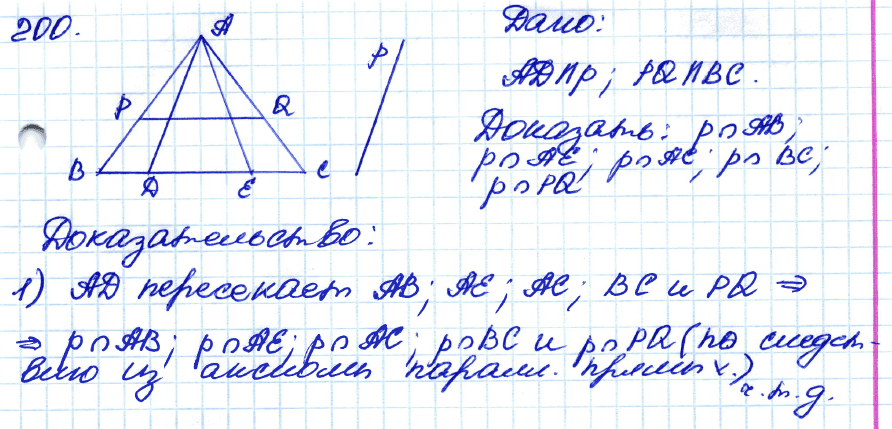 200.
A
p
P
Q
B
D
E
C
Дано:
AD∩p; PQ∩BC.
Доказать: p∩AB;
p∩AE; p∩AC; p∩BC;
p∩PQ
Доказательство:
1) AD пересекает AB; AE; AC; BC и PQ ⇒
⇒ p∩AB; p∩AE; p∩AC; p∩BC и p∩PQ (по следст-
вию из аксиомы паралл. прямых.)
ч.т.д.